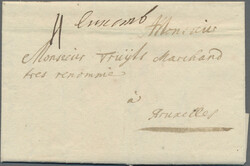 4 Luxemb Monsieur
Monsieur Truyts Marchand
tres renommé
à
Bruxelles